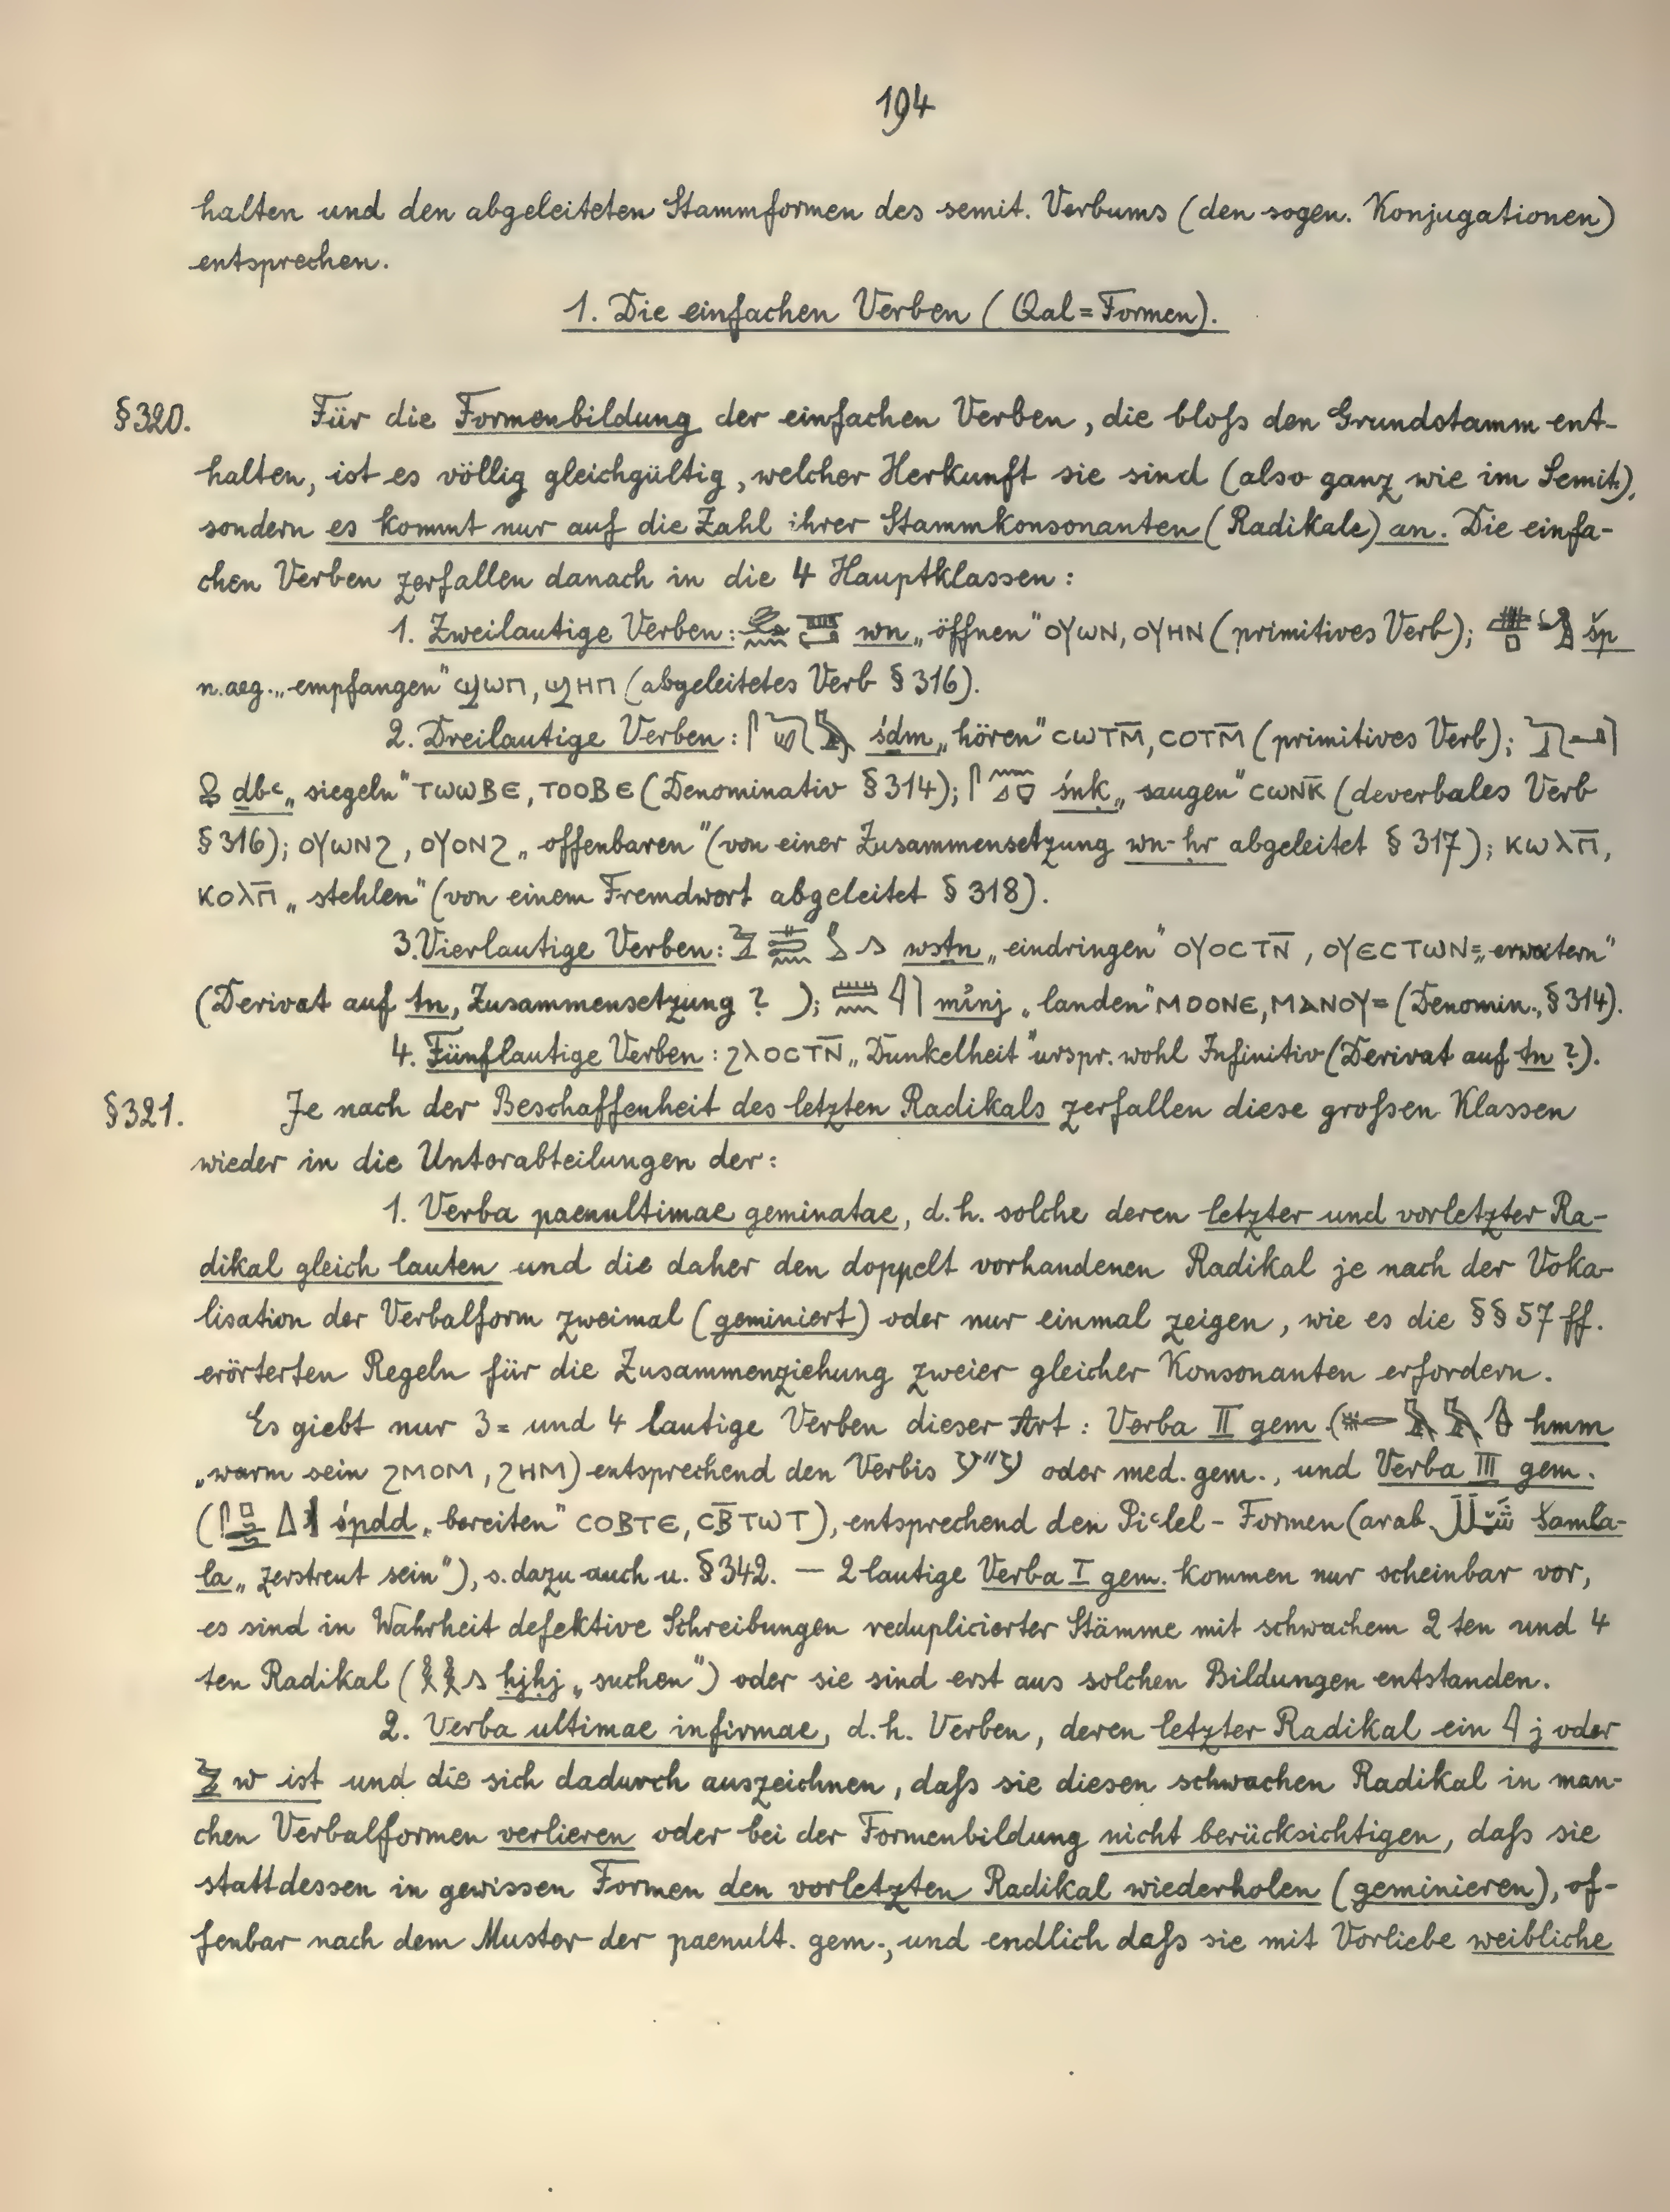 194
halten und den abgeleiteten Stammformen des semit. Verbums (den sogen. Konjugationen)
entsprechen.
1. Die einfachen Verben (Qal = Formen).
§ 320. Für die Formenbildung der einfachen Verben, die bloſs den Grundstamm ent-
halten, ist es völlig gleichgültig, welcher Herkunft sie sind (also ganz wie im Semit.),
sondern es kommt nur auf die Zahl ihrer Stammkonsonanten (Radikale) an. Die einfa-
chen Verben zerfallen danach in die 4 Hauptklassen:
1. Zweilautige Verben: wn „öffnen" ⲟⲩⲱⲛ, ⲟⲩⲏⲛ (primitives Verb); šp
n.aeg. „empfangen" ϣⲱⲡ, ϣⲏⲡ (abgeleitetes Verb § 316).
2. Dreilautige Verben: śdm „hören" ⲥⲱⲧⲙ̅, ⲥⲟⲧⲙ̅ (primitives Verb);
dbꜥ „siegeln" ⲧⲱⲱⲃⲉ, ⲧⲟⲟⲃⲉ (Denominativ § 314); śnk „saugen" ⲥⲱⲛⲕ̅ (deverbales Verb
§ 316); ⲟⲩⲱⲛϩ, ⲟⲩⲟⲛϩ „offenbaren" (von einer Zusammensetzung wn-ḥr abgeleitet § 317); ⲕⲱⲗⲡ̅,
ⲕⲟⲗⲡ̅ „stehlen" (von einem Fremdwort abgeleitet § 318).
3. Vierlautige Verben: wstn „eindringen" ⲟⲩⲟⲥⲧⲛ̅, ⲟⲩⲉⲥⲧⲱⲛ= „erweitern"
(Derivat auf tn, Zusammensetzung ? ); mỉnj „landen" ⲙⲟⲟⲛⲉ, ⲙⲁⲛⲟⲩ= (Denomin., § 314).
4. Fünflautige Verben: ϩⲗⲟⲥⲧⲛ̅ „Dunkelheit" urspr. wohl Infinitiv (Derivat auf tn ?).
§ 321. Je nach der Beschaffenheit des letzten Radikals zerfallen diese groſsen Klassen
wieder in die Unterabteilungen der:
1. Verba paenultimae geminatae, d.h. solche deren letzter und vorletzter Ra-
dikal gleich lauten und die daher den doppelt vorhandenen Radikal je nach der Voka-
lisation der Verbalform zweimal (geminiert) oder nur einmal zeigen, wie es die §§ 57 ff.
erörterten Regeln für die Zusammenziehung zweier gleicher Konsonanten erfordern.
Es giebt nur 3 = und 4 lautige Verben dieser Art: Verba II gem. ( hmm
„warm sein ϩⲙⲟⲙ, ϩⲏⲙ) entsprechend den Verbis ע"ע oder med. gem., und Verba III gem.
( śpdd „bereiten" ⲥⲟⲃⲧⲉ, ⲥⲃ̅ⲧⲱⲧ), entsprechend den Piꜥlel - Formen (arab. šamla-
la „zerstreut sein"), s. dazu auch u. § 342. — 2 lautige Verba I gem. kommen nur scheinbar vor,
es sind in Wahrheit defektive Schreibungen reduplicierter Stämme mit schwachem 2 ten und 4
ten Radikal ( ḥjḥj „suchen") oder sie sind erst aus solchen Bildungen entstanden.
2. Verba ultimae infirmae, d.h. Verben, deren letzter Radikal ein 𓇋 j oder
𓅱 w ist und die sich dadurch auszeichnen, daſs sie diesen schwachen Radikal in man-
chen Verbalformen verlieren oder bei der Formenbildung nicht berücksichtigen, daſs sie
stattdessen in gewissen Formen den vorletzten Radikal wiederholen (geminieren), of-
fenbar nach dem Muster der paenult. gem., und endlich daſs sie mit Vorliebe weibliche